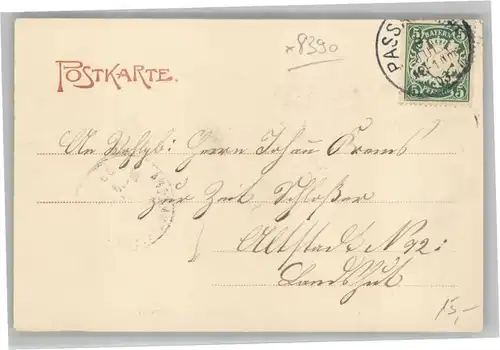 x8390
POSTKARTE.
BAYERN
5 5
PASS
An Wohlgb: Herrn Johann Krems
zur Zeit Schloßer
Altstadt No 92:
Landshut
15,-